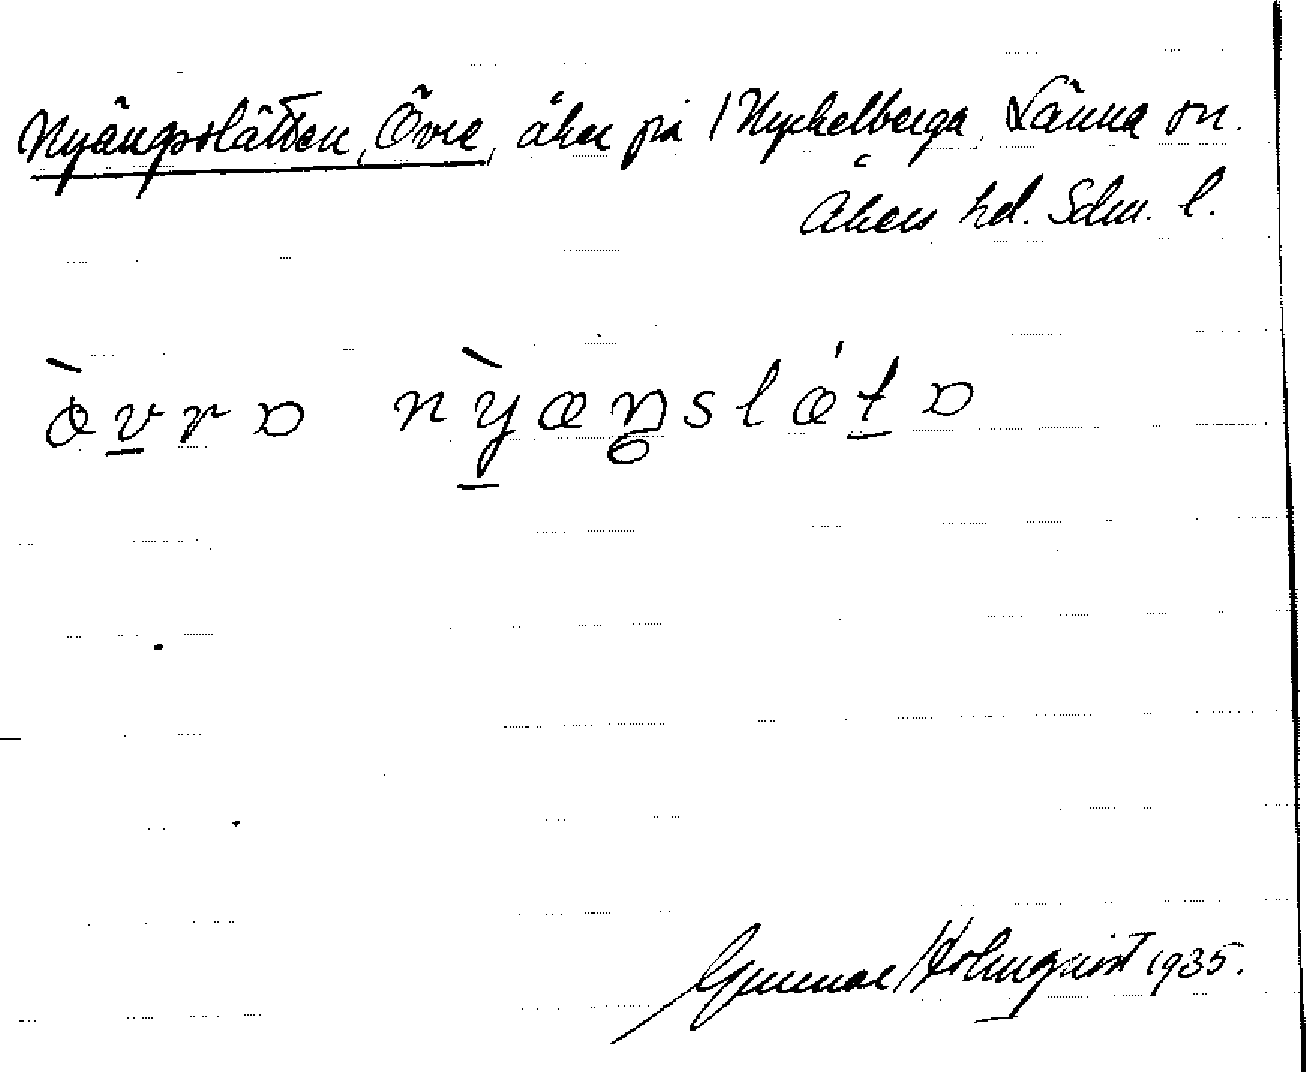 Nyängsslätten, Övre, åker på Nyckelberga, Länna sn.
Åkers hd. Sdm. l.
ö̀vrɒ nỳæŋslæ´tɒ
Gunnar Holmqvist 1935.